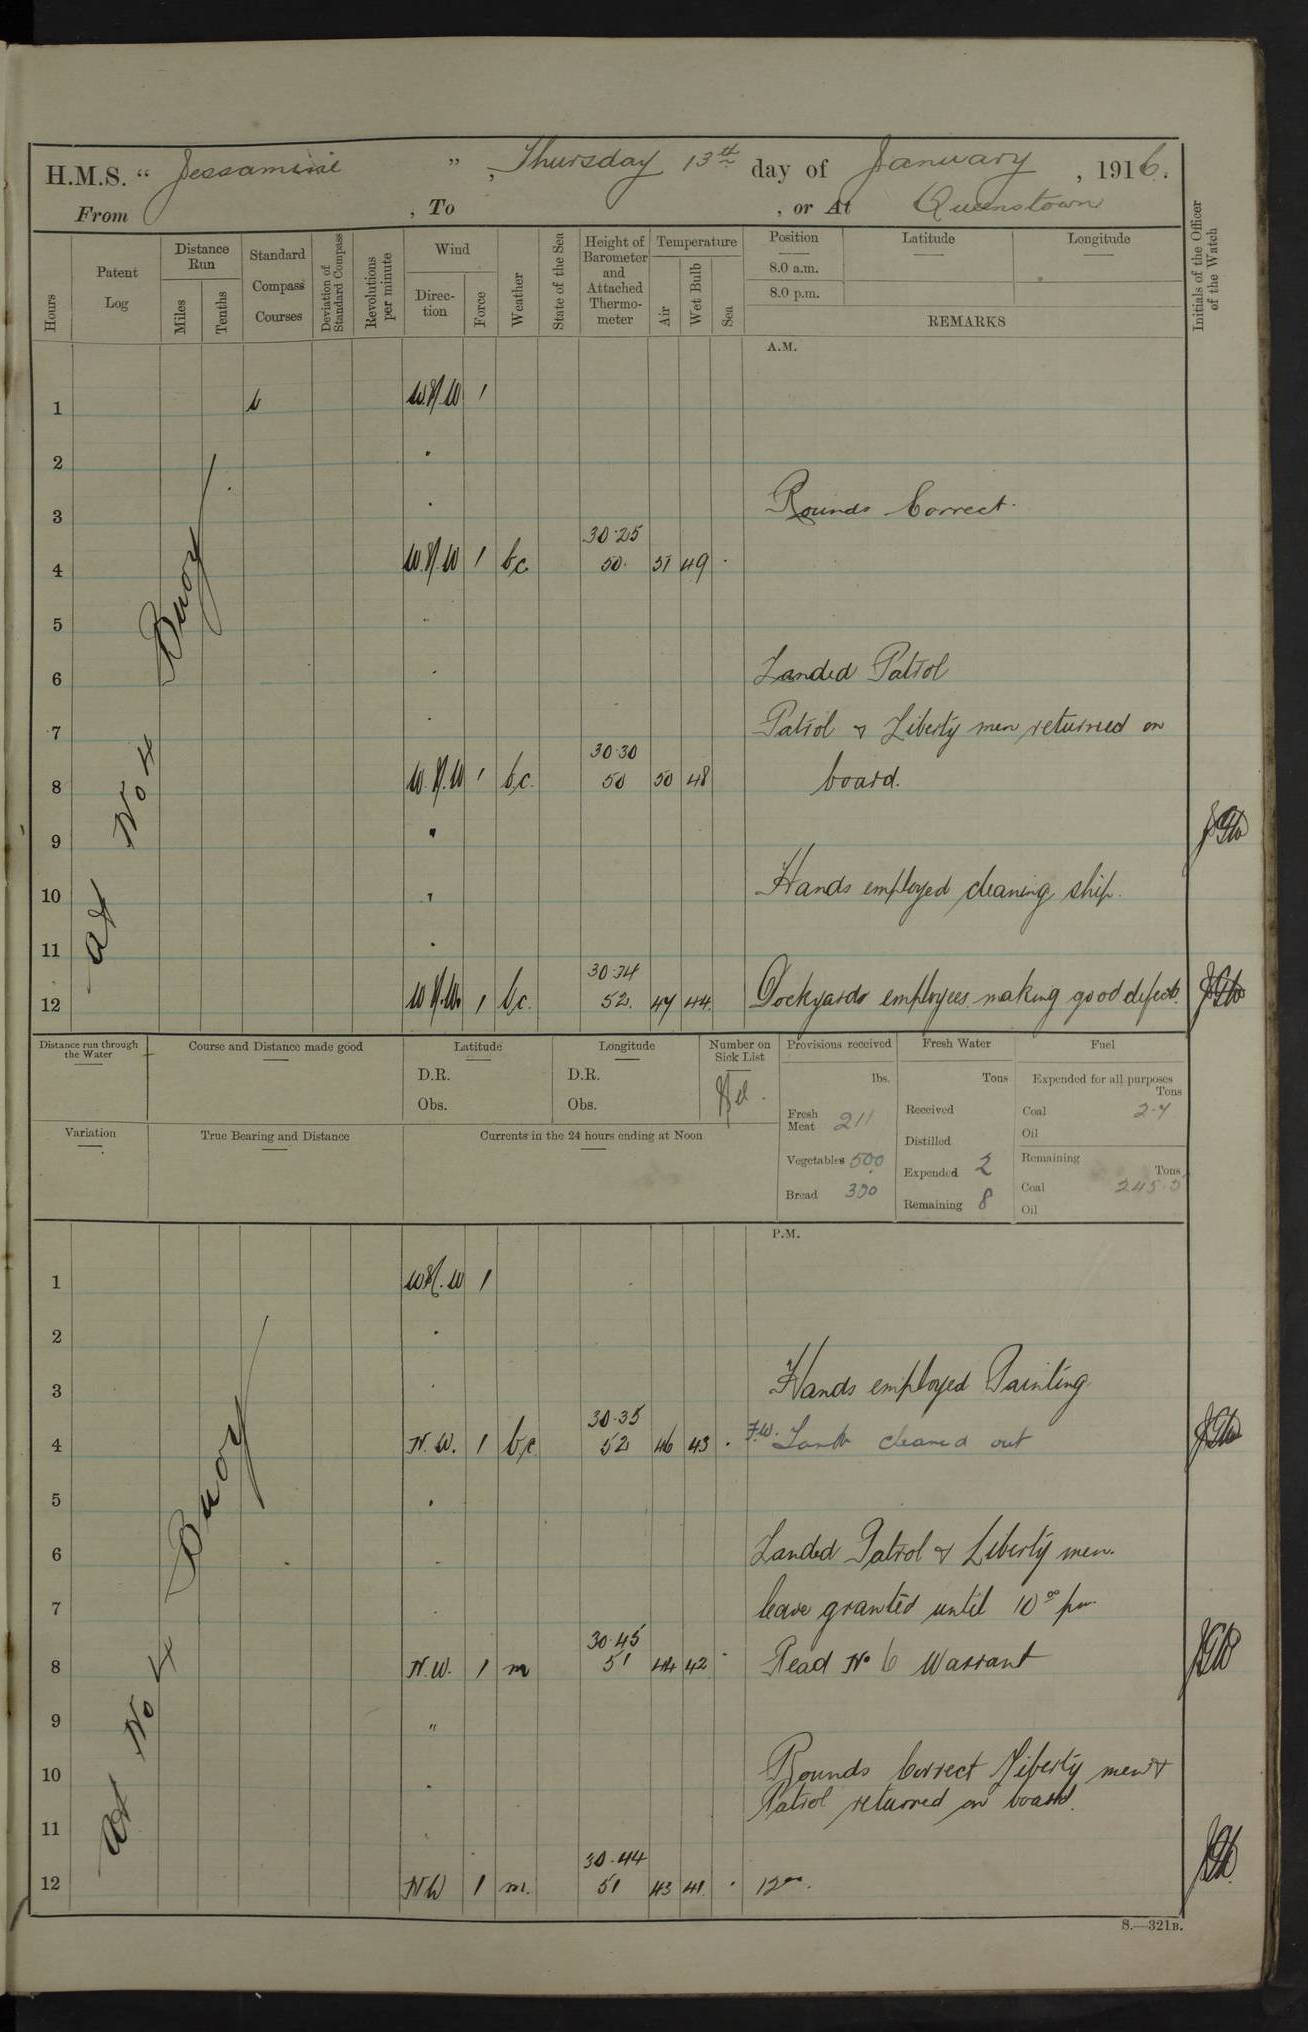 H.M.S. " Jessamine ", Thursday 13th day of January, 1916.
From , To , or At Queenstown
Hours
Patent Log
Distance Run
Miles
Tenths
Standard Compass Courses
Deviation of Standard Compass
Revolutions per minute
Wind
Direction
Force
Weather
State of the Sea
Height of Barometer and Attached Thermometer
Temperature
Air
Wet Bulb
Sea
Position
Latitude
Longitude
8.0 a.m.
8.0 p.m.
REMARKS
Initials of the Officer of the Watch
A.M.
At No 4 Buoy
1 W.N.W 1
2 .
3 . Rounds Correct.
30.25
4 W.N.W 1 b,c. 50. 51 49
5
6 Landed Patrol
7 Patrol & Liberty men returned on
30.30
8 W.N.W 1 b,c. 50 50 48 board.
9
10 Hands employed cleaning ship.
11
30.34
12 W N.W. 1 b,c. 52. 47 44. Dockyards employees making good defects.
Distance run through the Water
Course and Distance made good
Latitude
D.R.
Obs.
Longitude
D.R.
Obs.
Number on Sick List
Nil.
Provisions received
lbs.
Fresh Meat 211
Vegetables 500
Bread 300
Fresh Water
Tons
Received
Distilled
Expended 2
Remaining 8
Fuel
Expended for all purposes
Tons
Coal 2.7
Oil
Remaining
Tons
Coal 245.5
Oil
Variation
True Bearing and Distance
Currents in the 24 hours ending at Noon
P.M.
At No 4 Buoy
1 W N.W 1
2
3 Hands employed Painting
30.35
4 N.W. 1 b,c 52 46 43 F.W. Tank cleaned out
5
6 Landed Patrol & Liberty men.
7 leave granted until 10.00 pm
30.45
8 N.W. 1 m 51 44 42 Read No 6 Warrant
9 "
10 Rounds Correct Liberty men &
Patrol returned on board.
11
30.44
12 N W 1 m. 51 43 41. 12.00.
S.—321B.